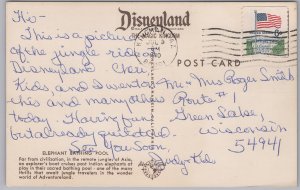 Disneyland
THE MAGIC KINGDOM
POST CARD
Hi-
This is a picture
of the jungle ride
Disneyland. Cheri
Kids, and I went
this and many other
today. Having fun
but already
See You Soon
Mr & Mrs Roger Smith
Route #1
Green Lake,
Wisconsin
54941
ELEPHANT BATHING POOL
Far from civilization, in the remote jungles of Asia,
an explorer's boat cruises past Indian elephants at
play in their sacred bathing pool - one of the many
thrills that await jungle travelers in the wonder
world of Adventureland.